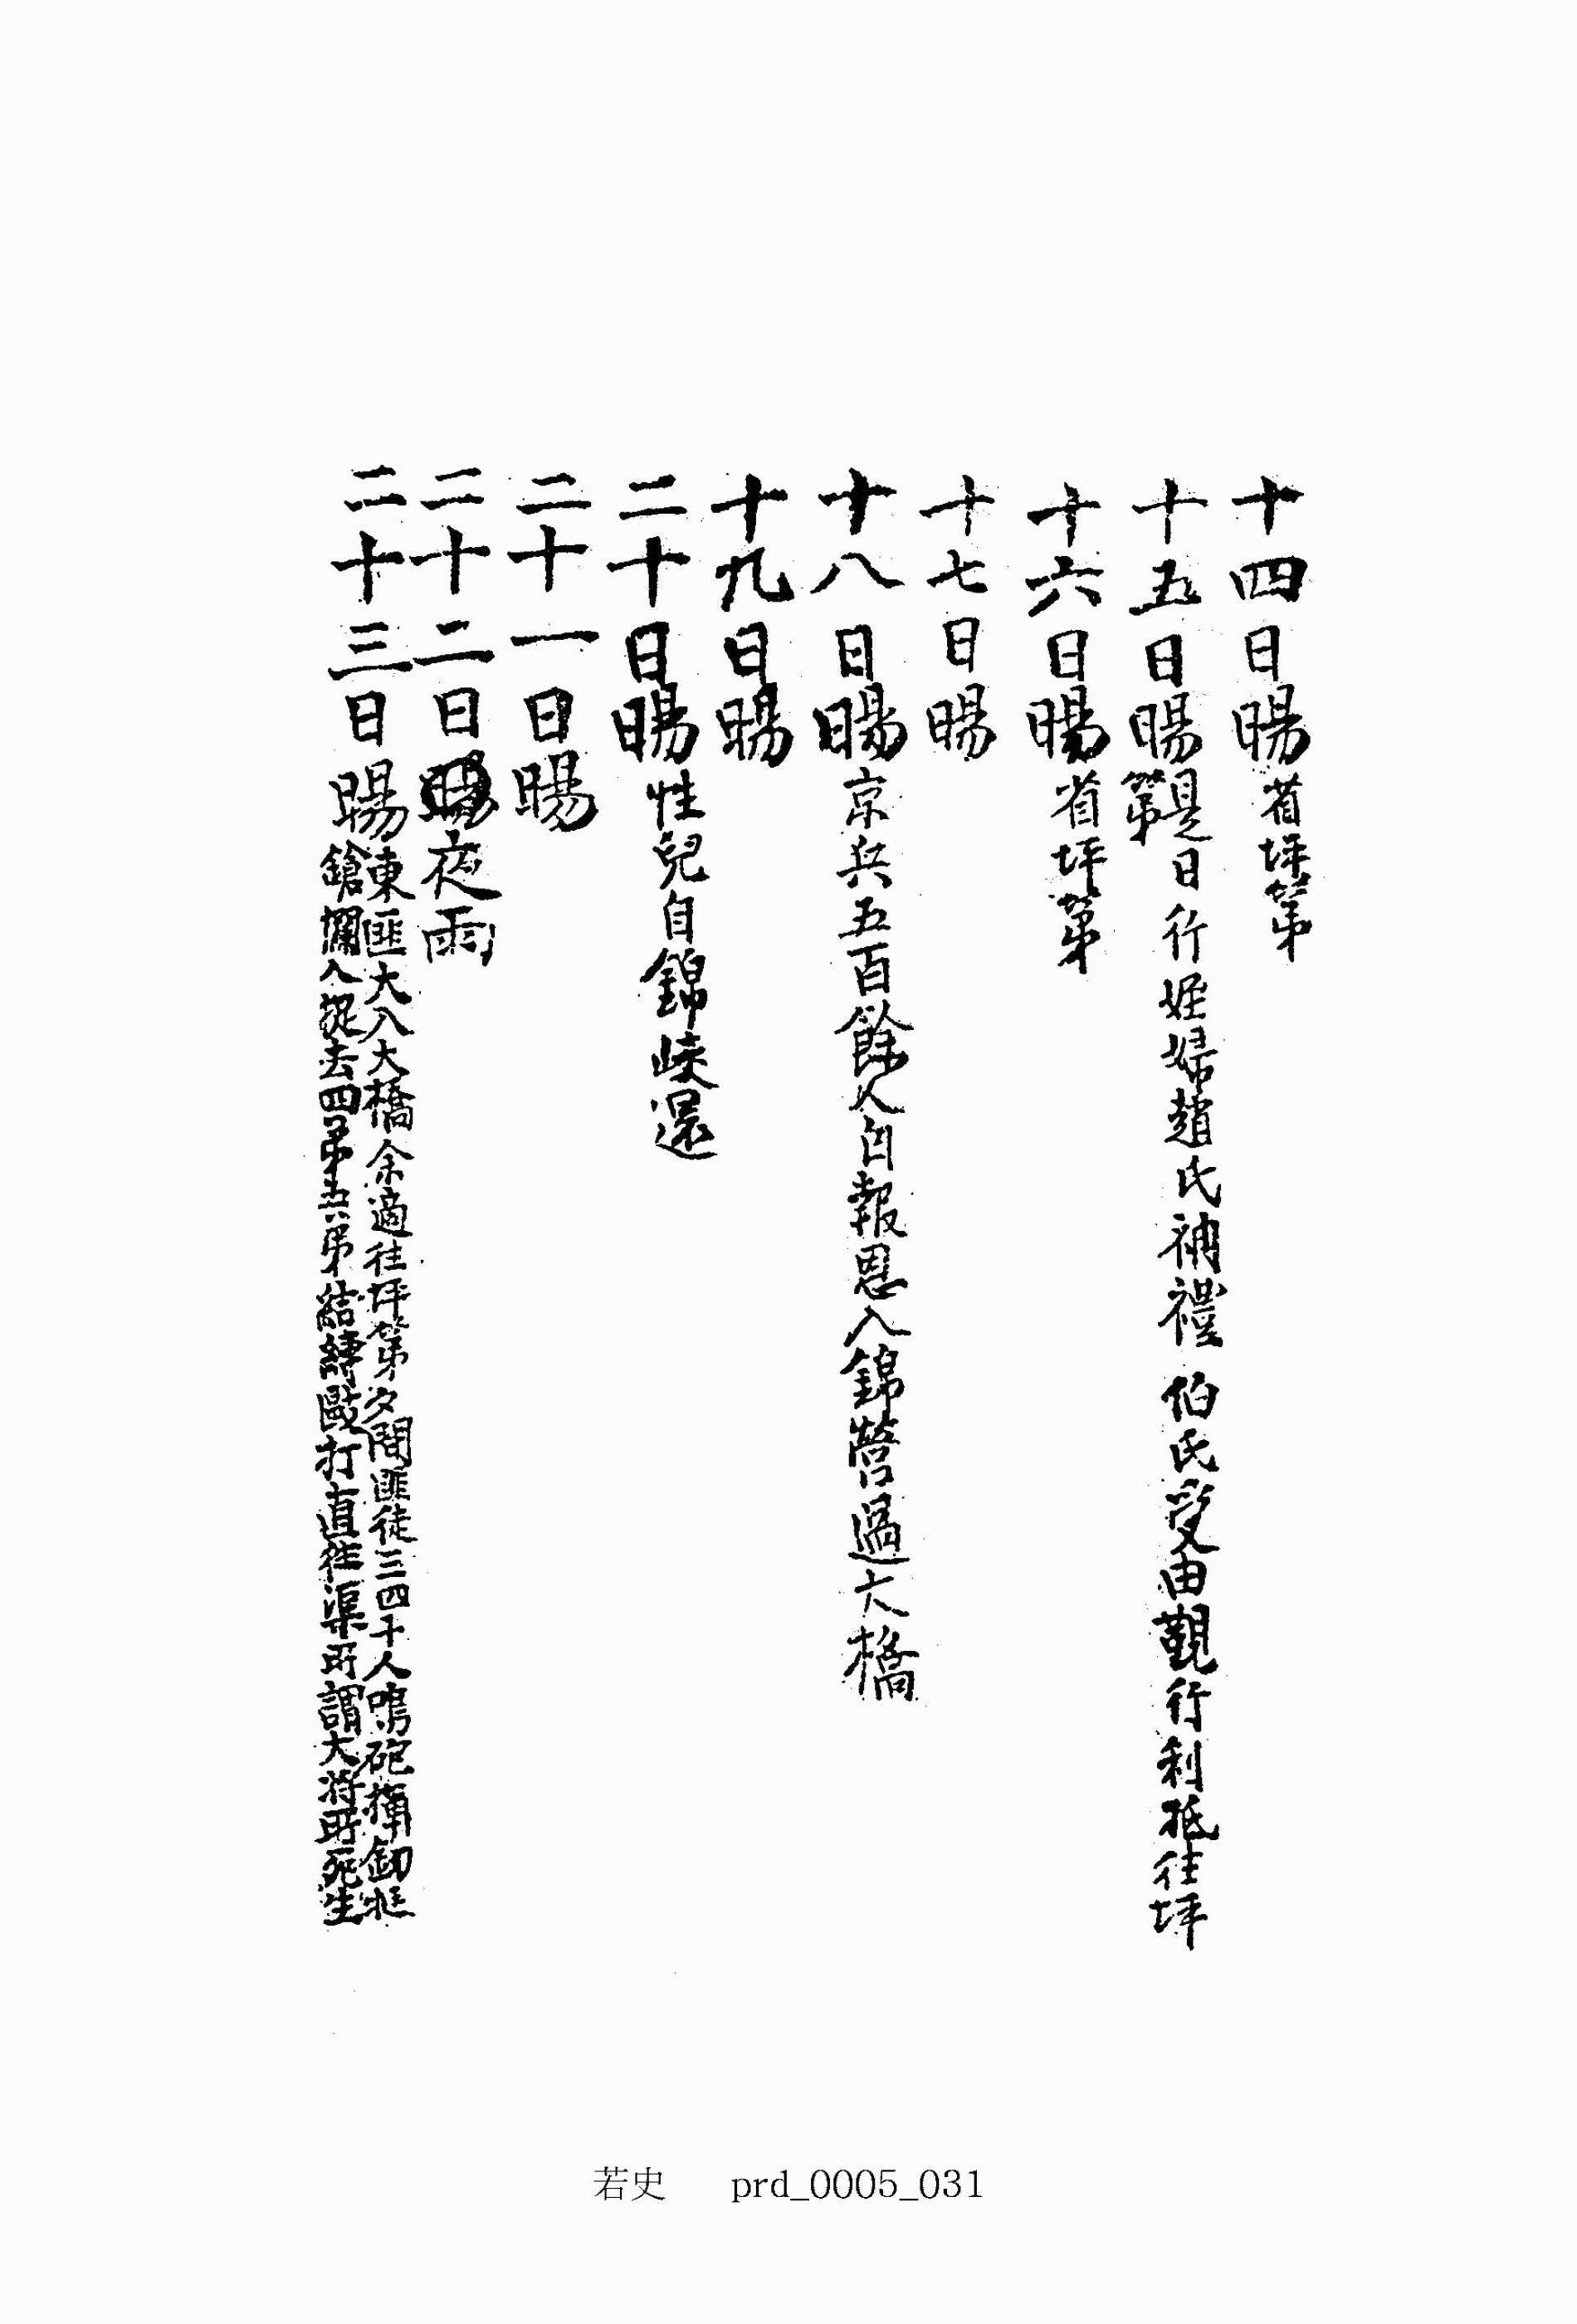 十四日暘省坪第
十五日暘是日行姪婦趙氏祔禮 伯氏受由觀行利抵往坪
第
十六日暘省坪第
十七日暘
十八日暘京兵五百餘人自報恩入錦營過大橋
十九日暘
二十日暘性兒自錦峽還
二十一日暘
二十二日暘夜雨
二十三日暘東匪大入大橋余適往坪第夕間匪徒三四十人鳴砲揮釰
鎗攔入捉去四弟六弟結縛毆打直往渠所謂大將所死生
若史 prd_0005_031